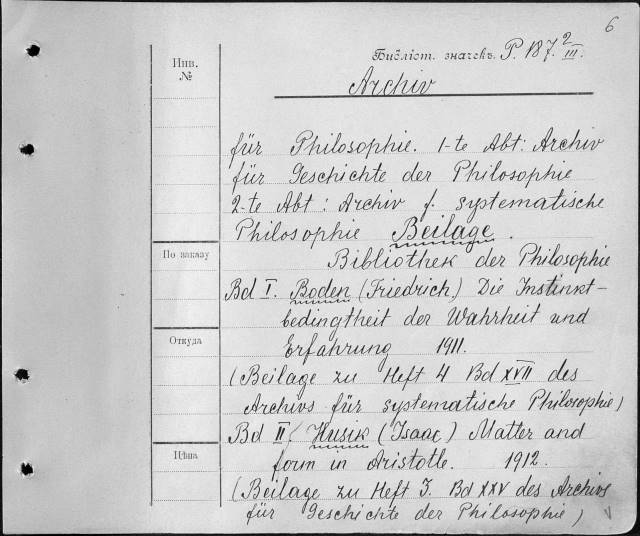 6
Инв. №
Библіот. значекъ. P. 187. 2/III.
Archiv
für Philosophie. 1-te Abt: Archiv
für Geschichte der Philosophie
2-te Abt: Archiv f. systematische
Philosophie Beilage.
По заказу
Bibliothek der Philosophie
Bd I. Boden (Friedrich) Die Instinkt-
bedingtheit der Wahrheit und
Откуда
Erfahrung 1911.
(Beilage zu Heft 4 Bd XVII des
Archivs für systematische Philosophie)
Bd II Husik (Isaac) Matter and
Цѣна
form in Aristotle. 1912.
(Beilage zu Heft 3. Bd XXV des Archivs
für Geschichte der Philosophie)